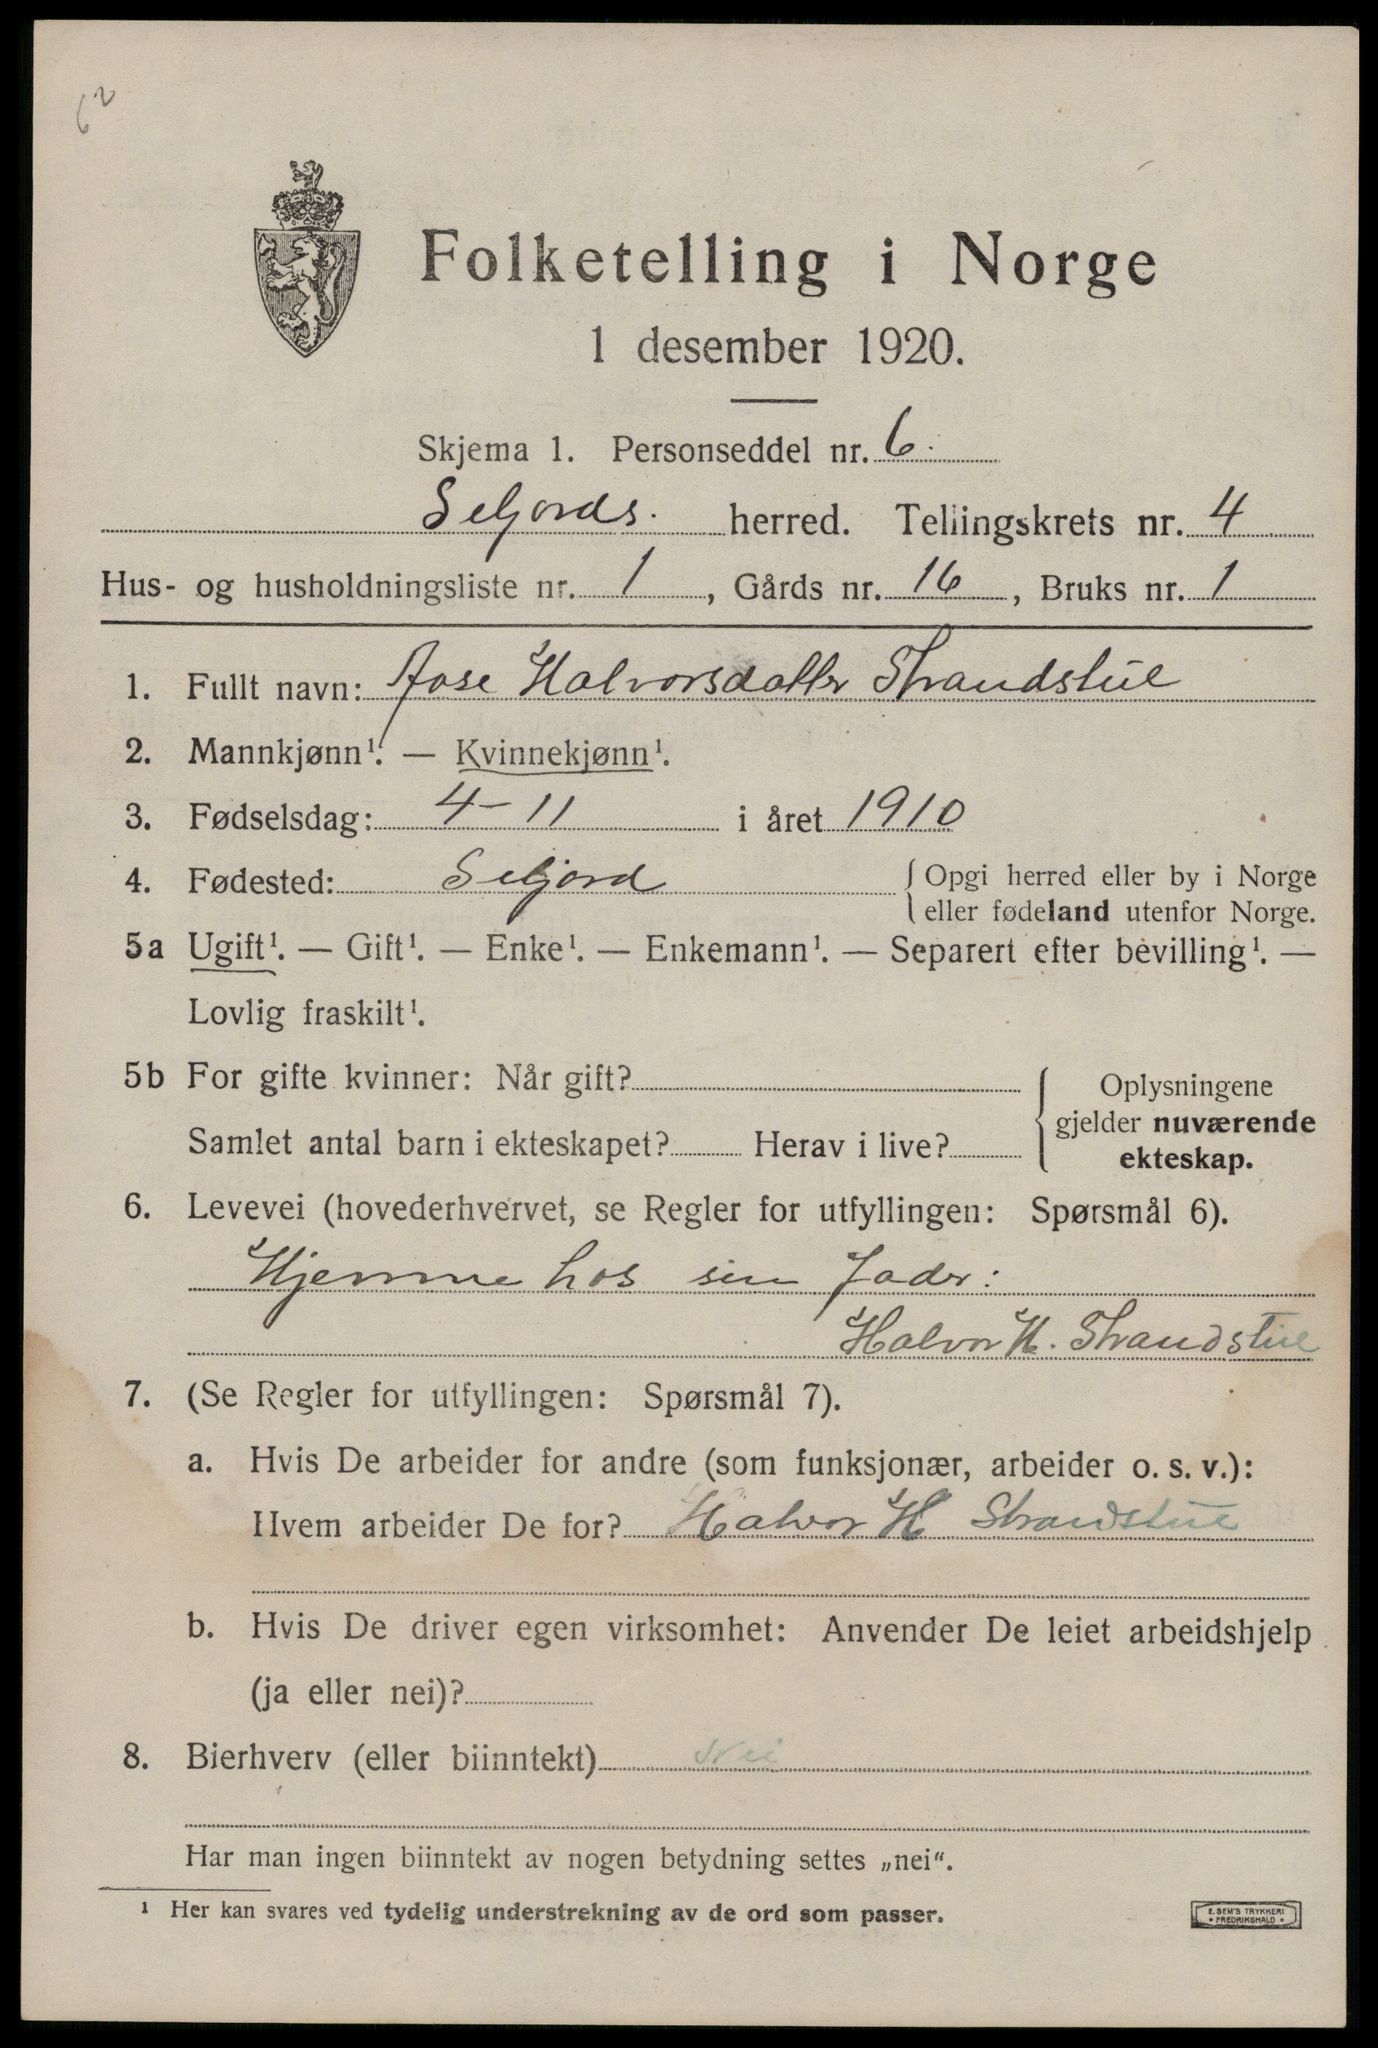 62
Folketelling i Norge
1 desember 1920.
Skjema 1. Personseddel nr. 6.
Seljords. herred. Tellingskrets nr. 4
Hus- og husholdningsliste nr. 1, Gårds nr. 16, Bruks nr. 1
1. Fullt navn: Aase Halvorsdatter Strandstue
2. Mannkjønn¹. — Kvinnekjønn¹.
3. Fødselsdag: 4-11 i året 1910
4. Fødested: Seljord { Opgi herred eller by i Norge
eller fødeland utenfor Norge.
5a Ugift¹. — Gift¹. — Enke¹. — Enkemann¹. — Separert efter bevilling¹. —
Lovlig fraskilt¹.
5b For gifte kvinner: Når gift? { Oplysningene
gjelder nuværende
Samlet antal barn i ekteskapet? Herav i live? ekteskap.
6. Levevei (hovederhvervet, se Regler for utfyllingen: Spørsmål 6).
Hjemme hos sin Fader:
Halvor H. Strandstue
7. (Se Regler for utfyllingen: Spørsmål 7).
a. Hvis De arbeider for andre (som funksjonær, arbeider o. s. v.):
Hvem arbeider De for? Halvor H Strandstue
b. Hvis De driver egen virksomhet: Anvender De leiet arbeidshjelp
(ja eller nei)?
8. Bierhverv (eller biinntekt) Nei
Har man ingen biinntekt av nogen betydning settes „nei“.
¹ Her kan svares ved tydelig understrekning av de ord som passer.
E. SEM'S TRYKKERI
* FREDRIKSHALD *